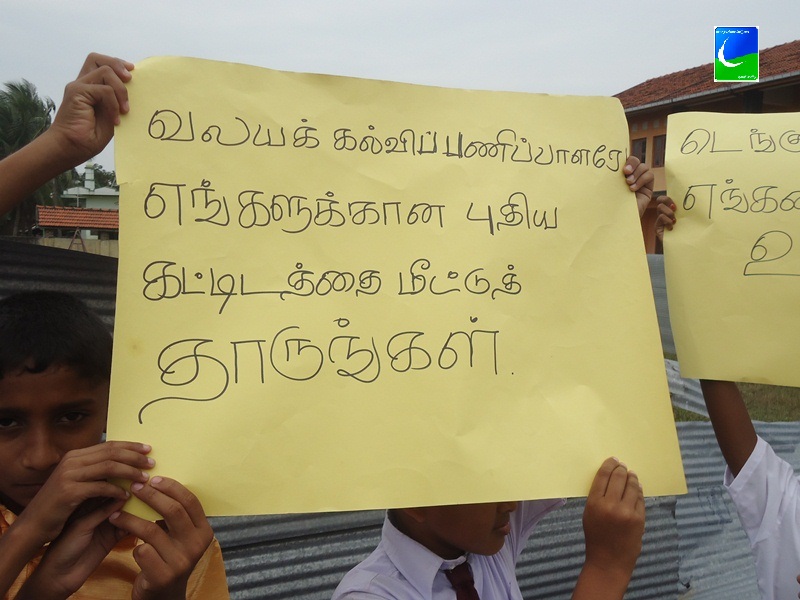 வலயக் கல்விப் பணிப்பாளரே!
எங்களுக்கான புதிய
கட்டிடத்தை மீட்டுத்
தாருங்கள்.
டெங்கு
எங்களை
உ